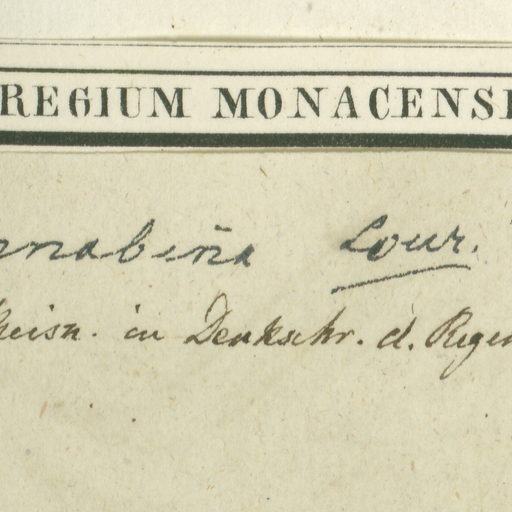 REGIUM MONACENS
nnabiña Lour.
eisn. in Denkschr. d. Regen